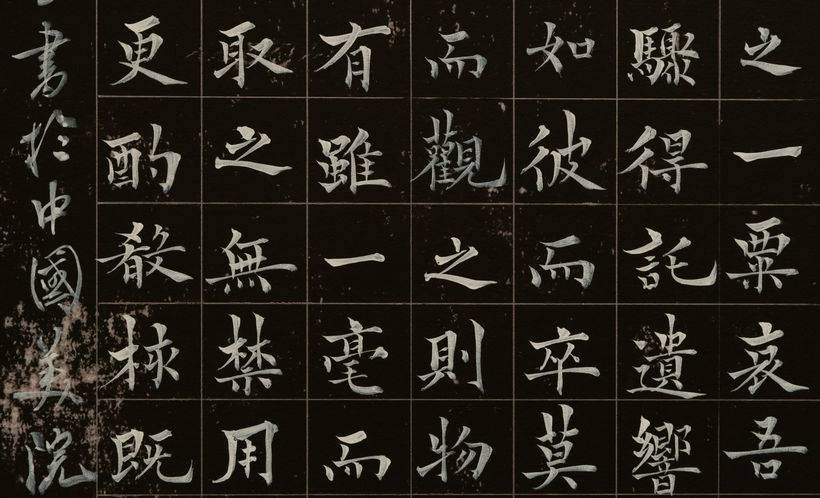 之一粟哀吾
驟得託遺響
如彼而卒莫
而觀之則物
有雖一毫而
取之無禁用
更酌殽核既
書於中國美院